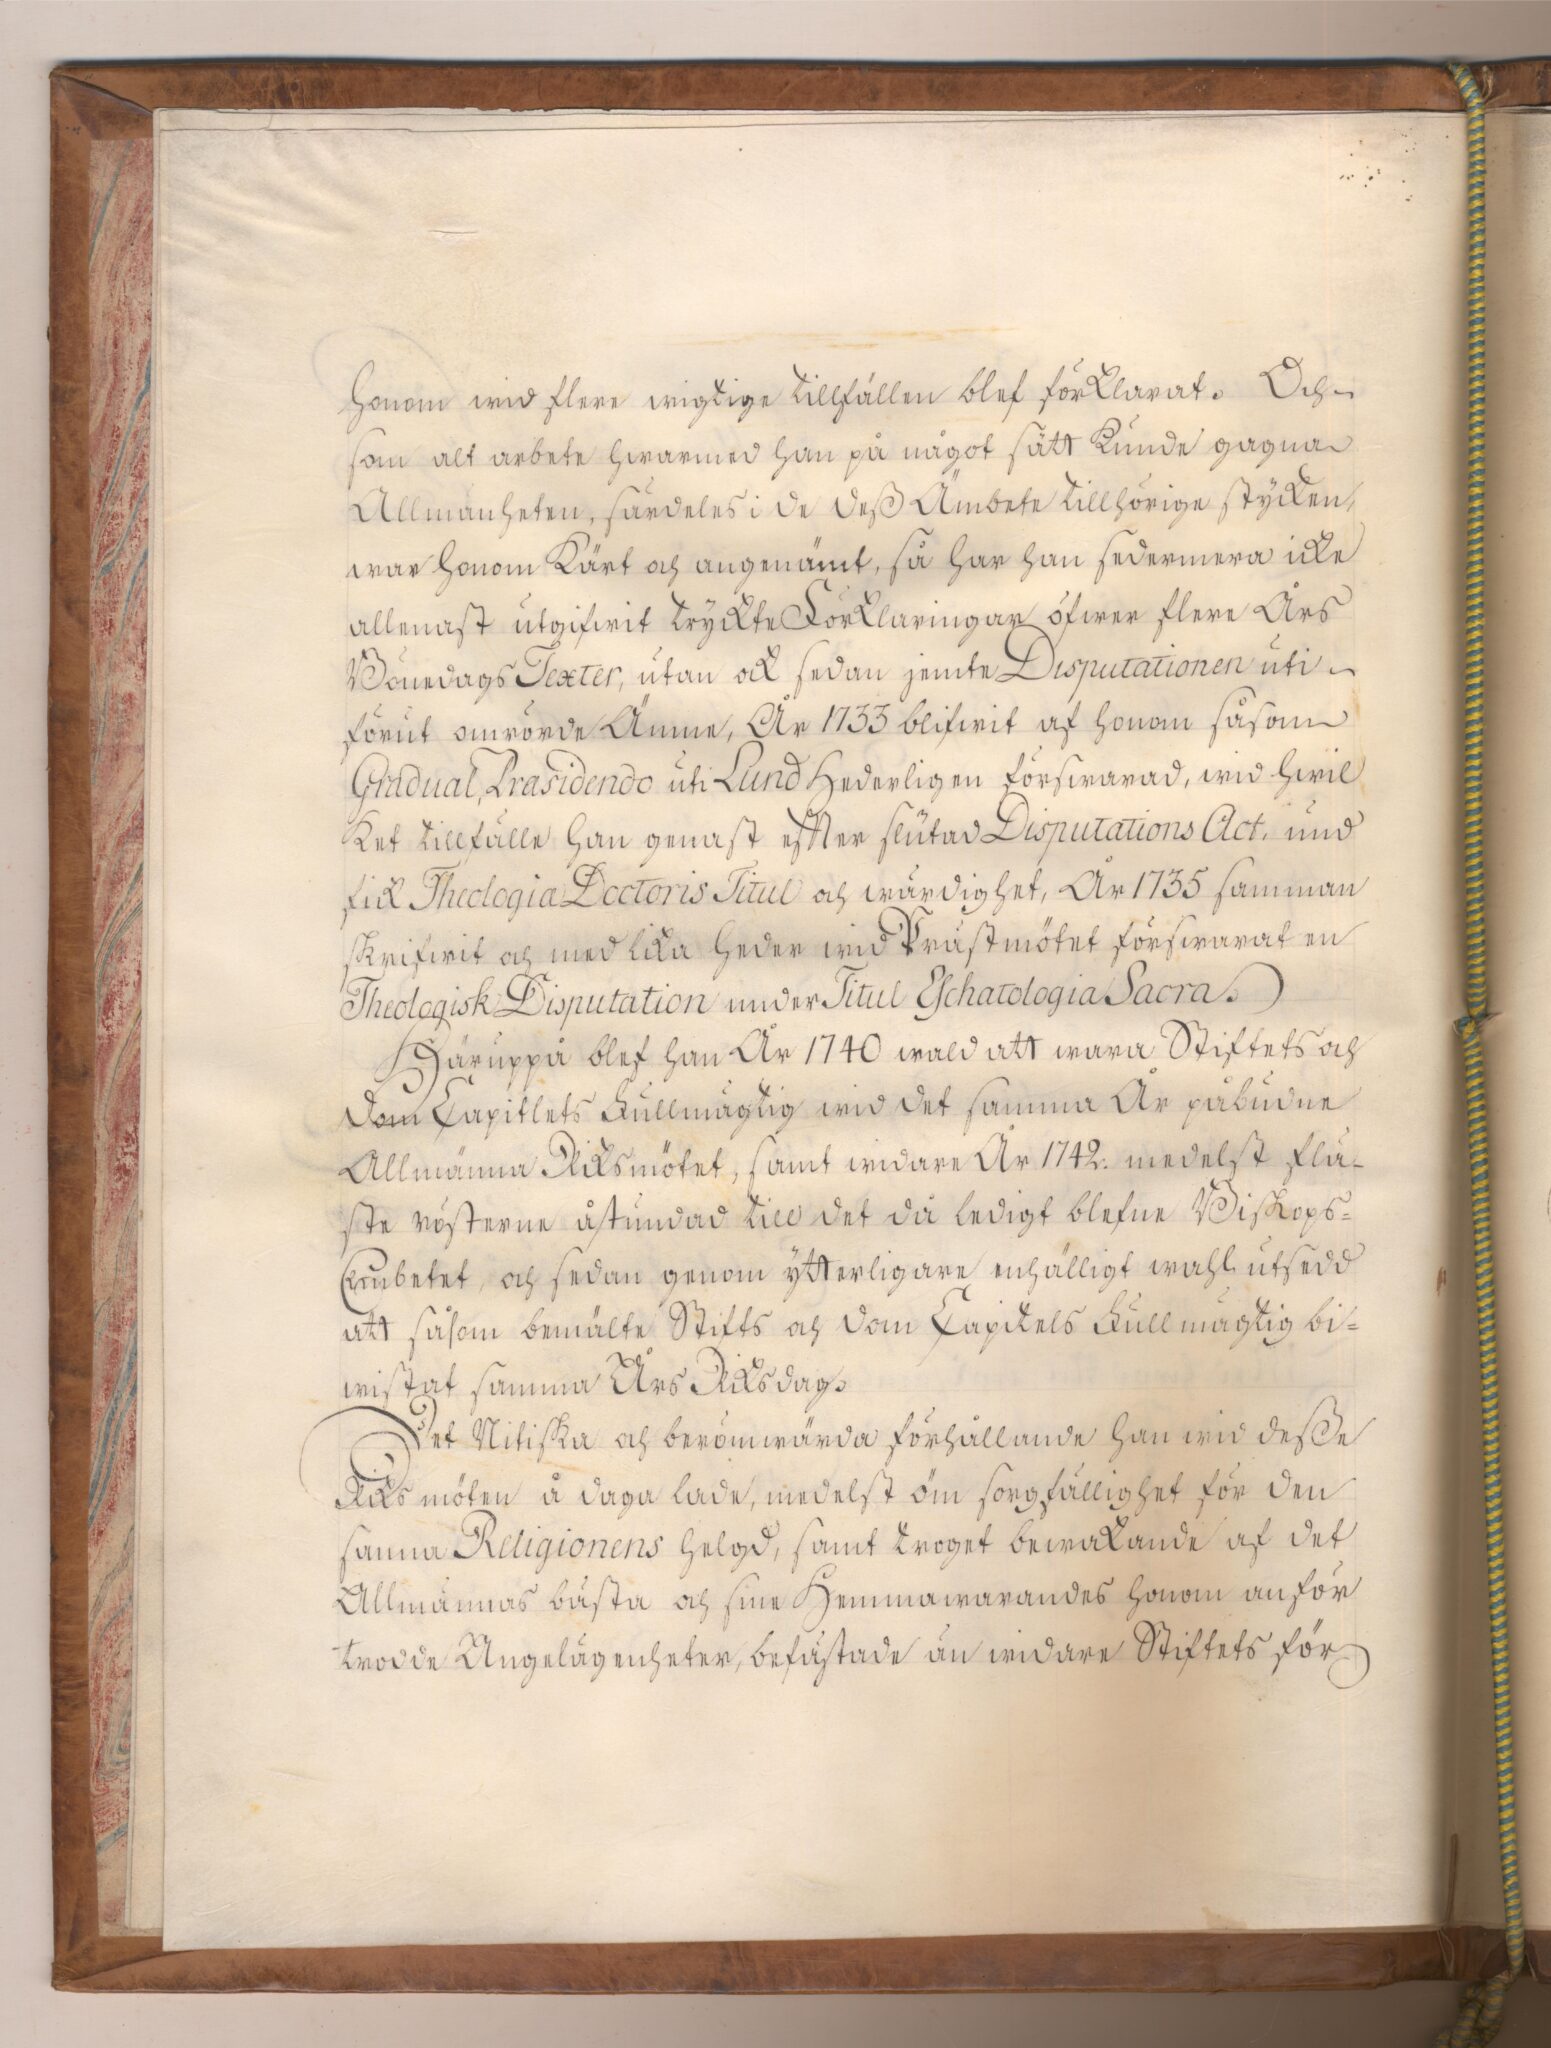 honom wid flere wigtige tillfällen blef förklarat. Och
som alt arbete hwarmed han på något sätt kunde gagna
Allmänheten, särdeles i de deß Ämbete tillhörige stycken,
war honom kärt och angenämt, så har han sedermera icke
allenast utgifwit tryckte Förklaringar öfwer flere Års
Bönedags Texter, utan ock sedan jemte Disputationen uti
förut omrörde Ämne, År 1733 blifwit af honom såsom
Gradual, Præsidendo uti Lund Hederligen förswarad, wid hwil
ket tillfälle han genast efter slutad Disputations Act. und
fick Theologiæ Doctoris Titul och wärdighet, År 1735 samman
skrifwit och med lika heder wid Prästmötet förswarat en
Theologisk Disputation under Titul Eschatologia Sacra.
Häruppå blef han År 1740 wald att wara Stiftets och
Dom Capitlets Fullmägtig wid det samma År påbudne
Allmänna Riksmötet, samt widare År 1742. medelst flä-
ste rösterne åstundad till det då ledigt blefne Biskops-
Embetet, och sedan genom ytterligare enhälligt wahl utsedd
att såsom bemälte Stifts och Dom Capitels Fullmägtig bi-
wistat samma Års Riksdag.
Det Nitiska och berömwärda förhållande han wid deße
Riks möten å daga lade, medelst öm sorgfällighet för den
sanna Religionens helgd, samt troget bewakande af det
Allmännas bästa och sine Hemmawarandes honom anför
trodde Angelägenheter, befästade än widare Stiftets för